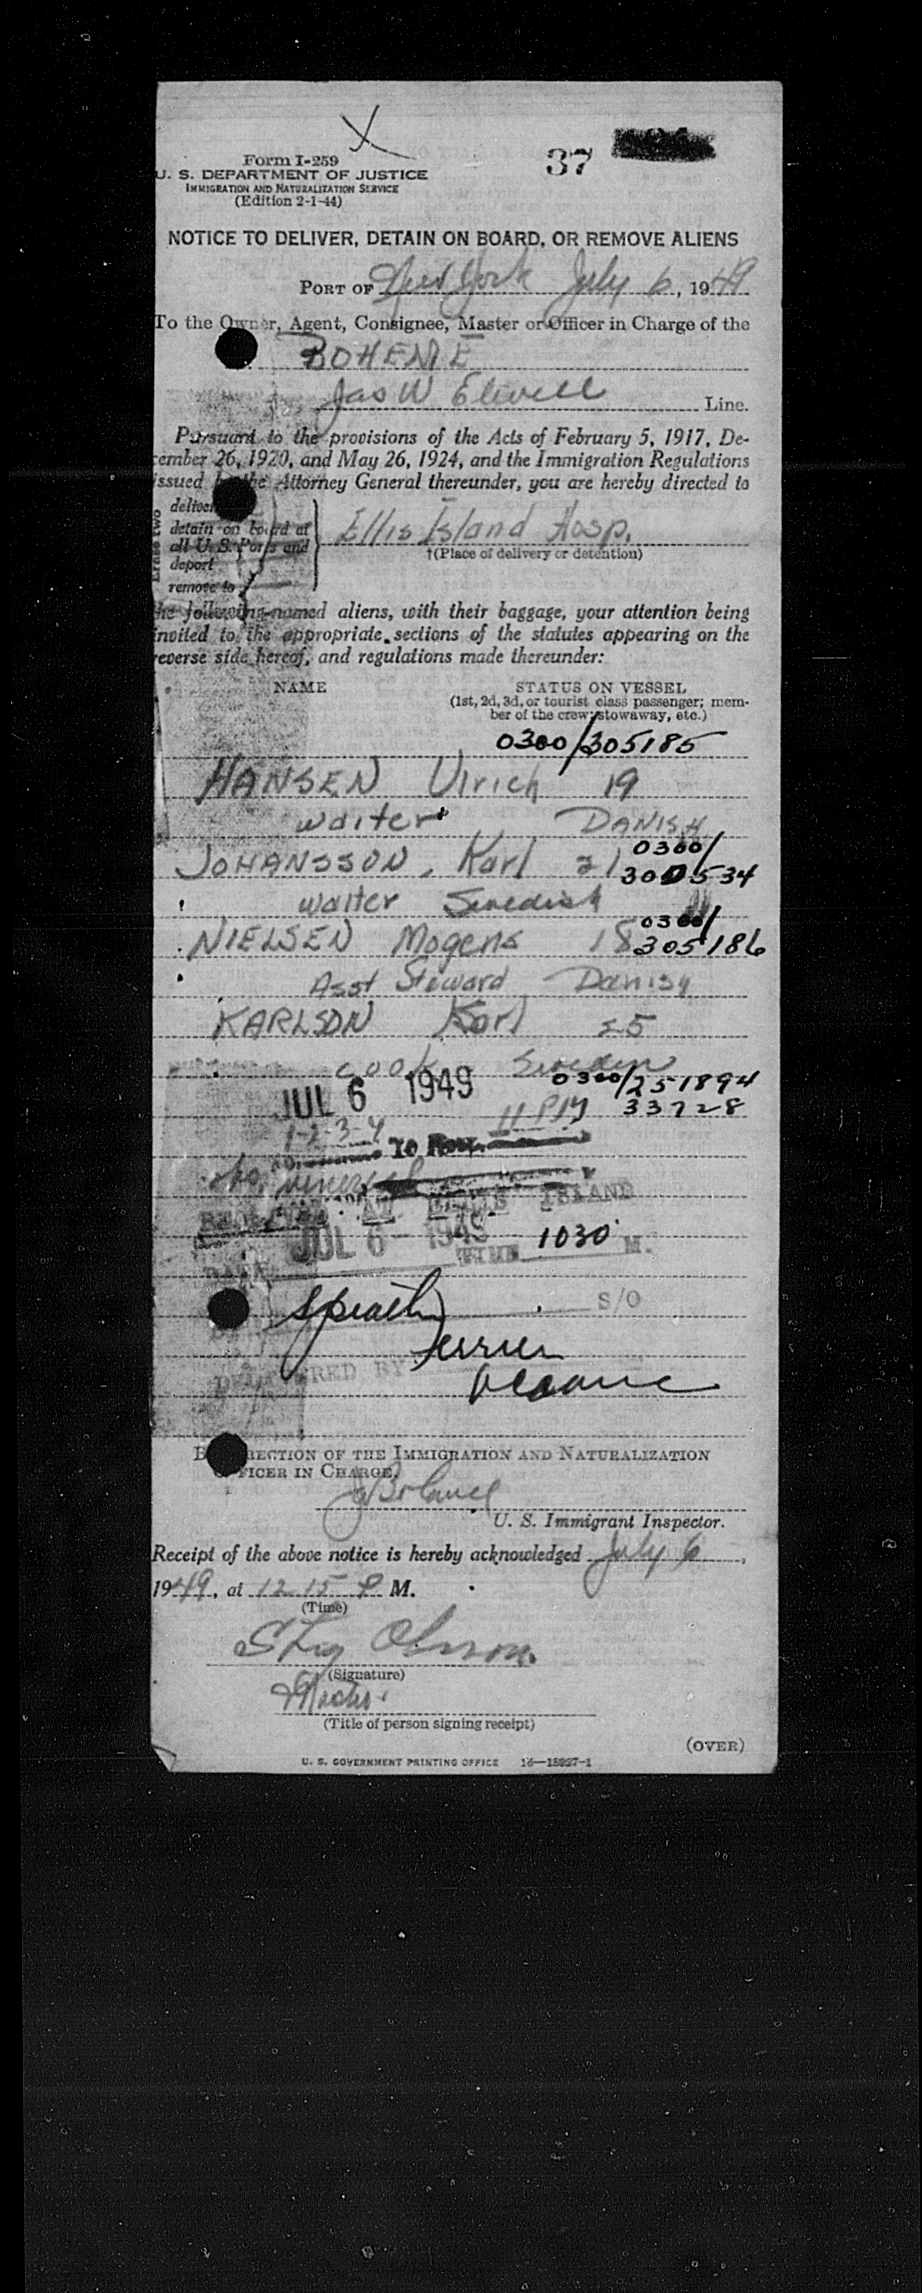 37
Form I-259
U. S. DEPARTMENT OF JUSTICE
IMMIGRATION AND NATURALIZATION SERVICE
(Edition 2-1-44)
NOTICE TO DELIVER, DETAIN ON BOARD, OR REMOVE ALIENS
PORT OF New York July 6, 1949
To the Owner, Agent, Consignee, Master or Officer in Charge of the
BOHEME
Jas W Elwell Line.
Pursuant to the provisions of the Acts of February 5, 1917, De-
cember 26, 1920, and May 26, 1924, and the Immigration Regulations
issued by the Attorney General thereunder, you are hereby directed to
deliver
detain on board at
all U. S. Ports and
deport
remove to
Erase two
Ellis Island Hosp.
†(Place of delivery or detention)
the following-named aliens, with their baggage, your attention being
invited to the appropriate sections of the statutes appearing on the
reverse side hereof, and regulations made thereunder:
NAME STATUS ON VESSEL
(1st, 2d, 3d, or tourist class passenger; mem-
ber of the crew; stowaway, etc.)
0300/305185
HANSEN Ulrich 19
waiter DANISH
JOHANSSON, Karl 21 0300/
300534
waiter Swedish
NIELSEN Mogens 18 0300/
305186
Asst Steward Danish
KARLSON Karl 25
cook Sweden
0300/251894
JUL 6 1949
33728
1-2-3-4 To Row
RECEIVED AT ELLIS ISLAND
JUL 6 - 1949 TIME 1030 M.
DATE
S/O
DELIVERED BY
BY DIRECTION OF THE IMMIGRATION AND NATURALIZATION
OFFICER IN CHARGE.
U. S. Immigrant Inspector.
Receipt of the above notice is hereby acknowledged July 6,
1949, at 12 15 P M.
(Time)
Stig Olsson
(Signature)
(Title of person signing receipt)
(OVER)
U. S. GOVERNMENT PRINTING OFFICE 16—18927-1